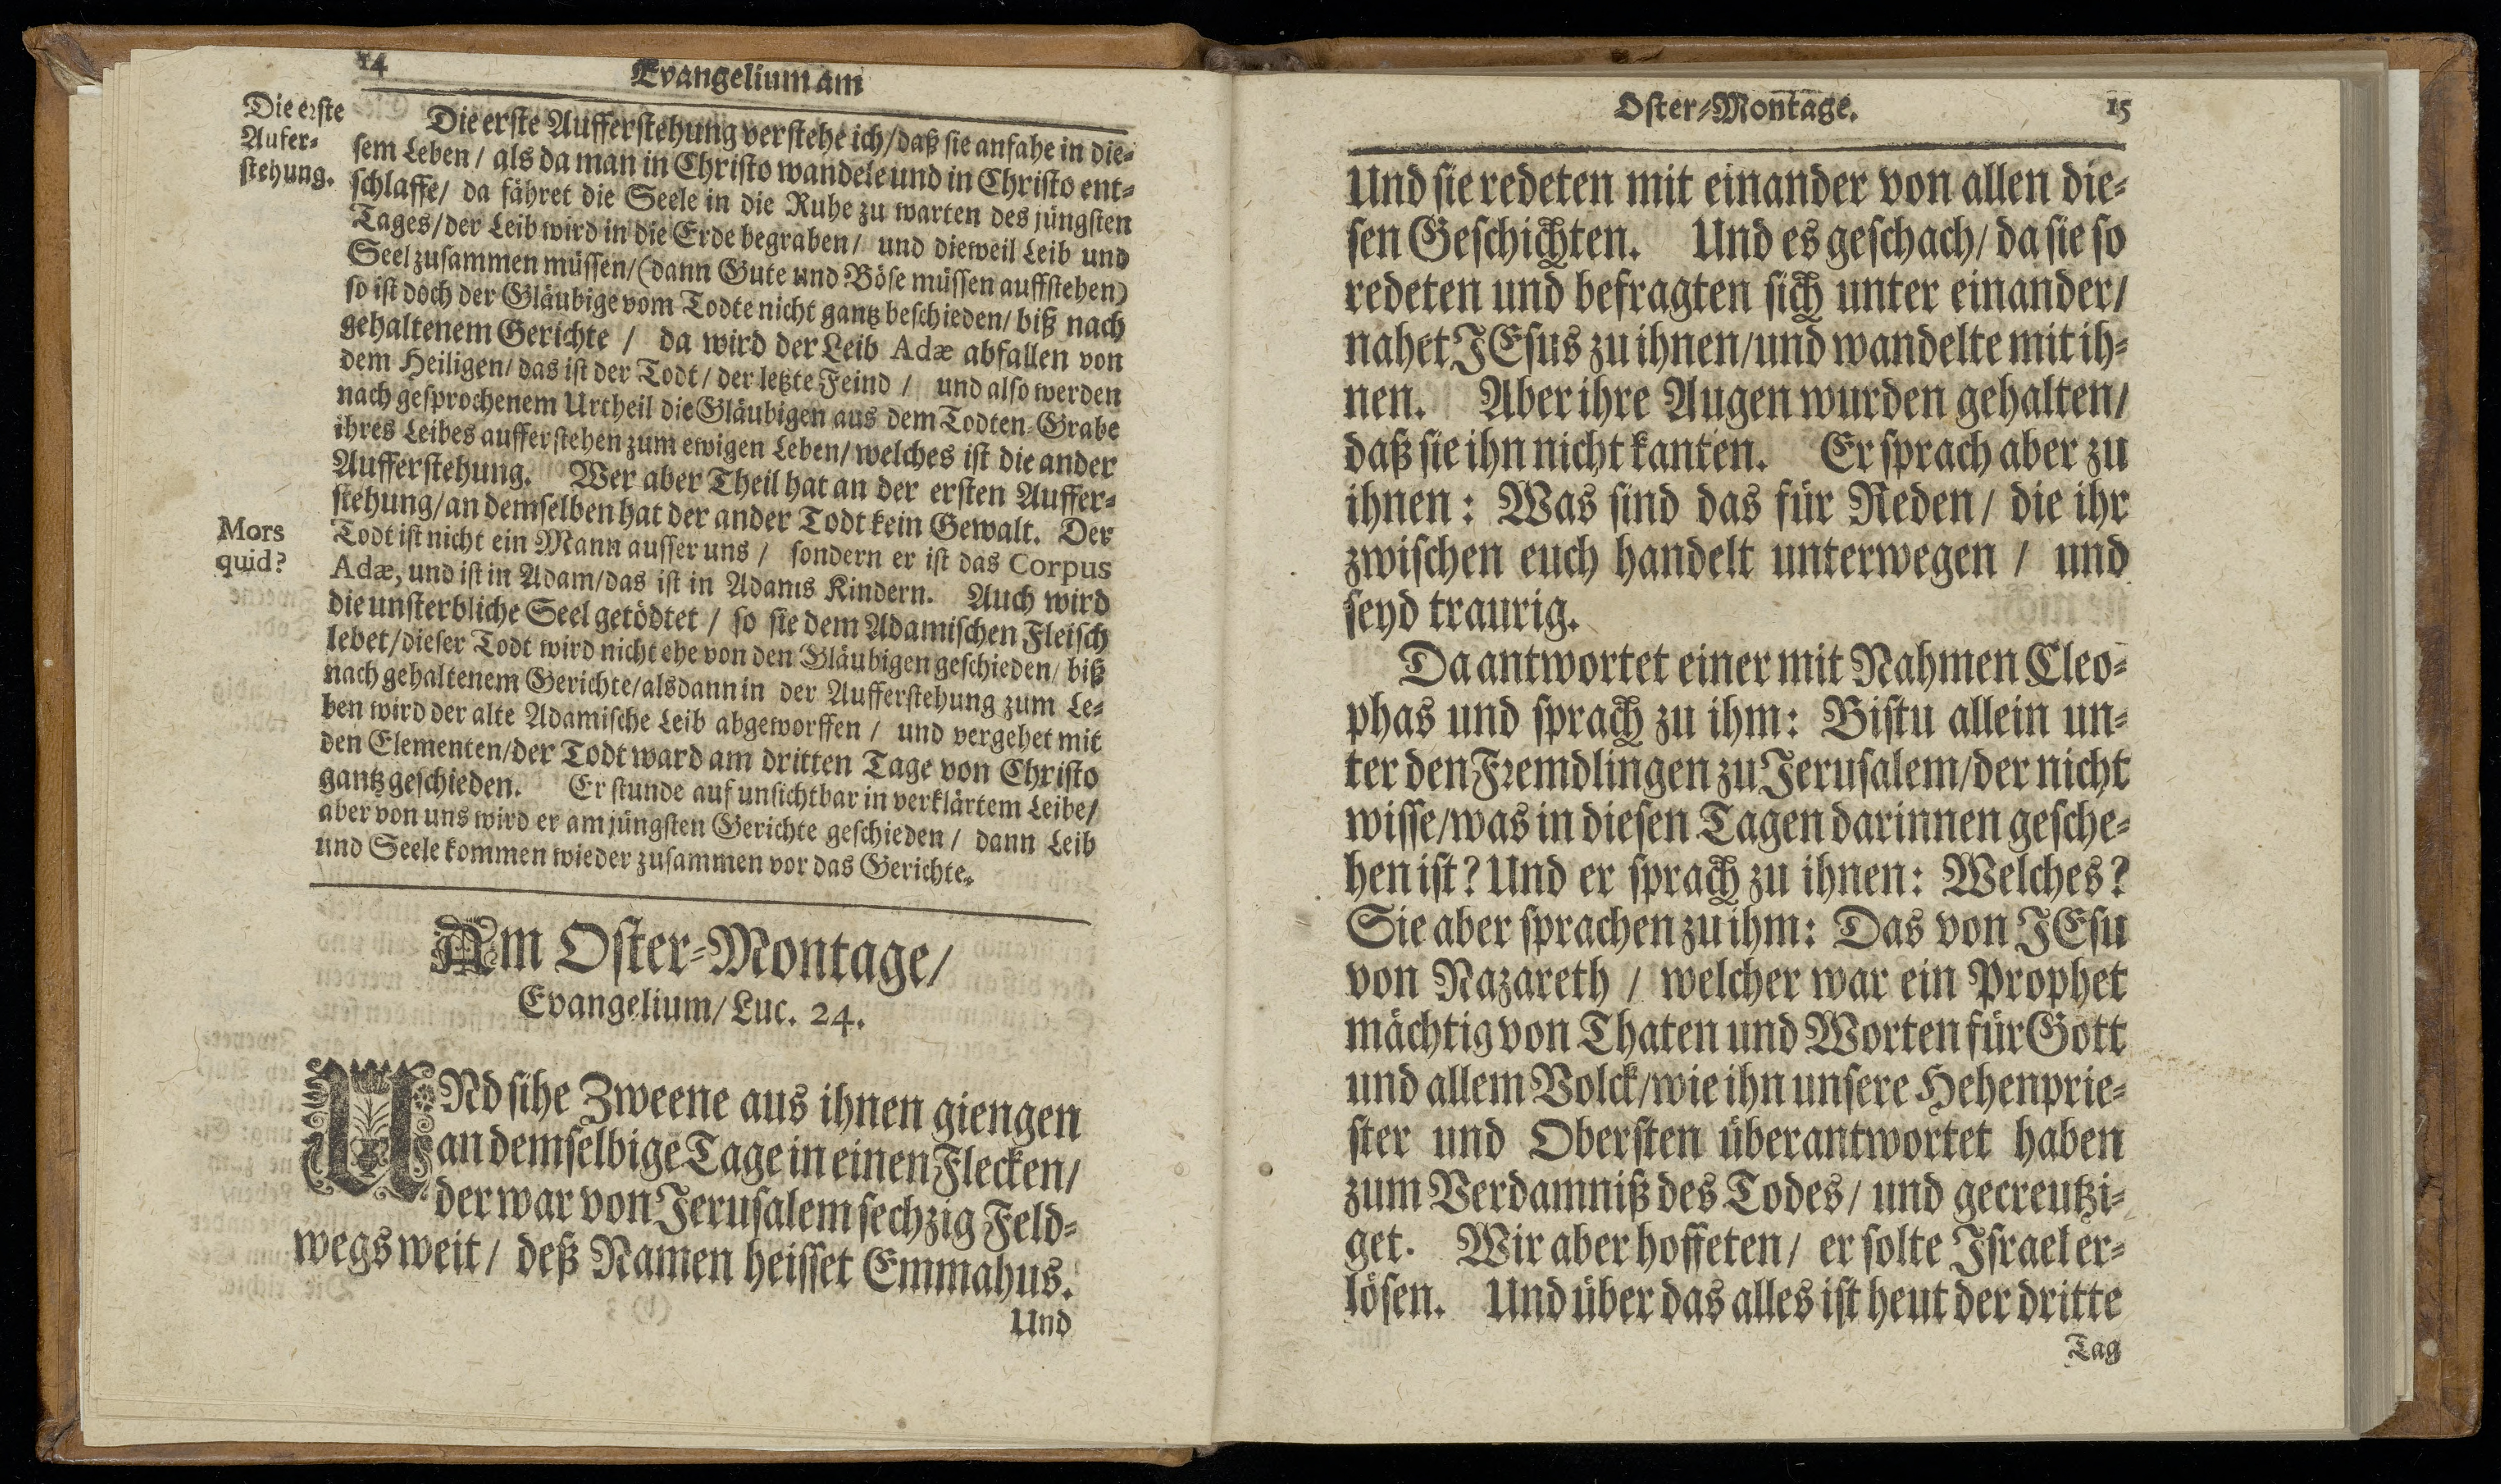 14
Evangelium am
Die erste
Aufer-
stehung.
Die erste Aufferstehung verstehe ich/daß sie anfahe in die-
sem Leben / als da man in Christo wandele und in Christo ent-
schlaffe/ da fähret die Seele in die Ruhe zu warten des jüngsten
Tages/der Leib wird in die Erde begraben/ und dieweil Leib und
Seel zusammen müssen/(dann Gute und Böse müssen auffstehen)
so ist doch der Gläubige vom Todte nicht gantz beschieden/ biß nach
gehaltenem Gerichte / da wird der Leib Adæ abfallen von
dem Heiligen/ das ist der Todt/ der letzte Feind / und also werden
nach gesprochenem Urtheil die Gläubigen aus dem Todten-Grabe
ihres Leibes aufferstehen zum ewigen Leben/ welches ist die ander
Aufferstehung. Wer aber Theil hat an der ersten Auffer-
stehung/an demselben hat der ander Todt kein Gewalt. Der
Mors
quid?
Todt ist nicht ein Mann ausser uns / sondern er ist das Corpus
Adæ, und ist in Adam/das ist in Adams Kindern. Auch wird
die unsterbliche Seel getödtet / so sie dem Adamischen Fleisch
lebet/dieser Todt wird nicht ehe von den Gläubigen geschieden/ biß
nach gehaltenem Gerichte/alsdann in der Aufferstehung zum Le-
ben wird der alte Adamische Leib abgeworffen / und vergehet mit
den Elementen/der Todt ward am dritten Tage von Christo
gantz geschieden. Er stunde auf unsichtbar in verklärtem Leibe/
aber von uns wird er am jüngsten Gerichte geschieden / dann Leib
und Seele kommen wieder zusammen vor das Gerichte.
Am Oster-Montage/
Evangelium/ Luc. 24.
UNd sihe Zweene aus ihnen giengen
an demselbige Tage in einen Flecken/
der war von Jerusalem sechzig Feld-
wegs weit / deß Namen heisset Emmahus.
Und
Oster-Montage.
15
Und sie redeten mit einander von allen die-
sen Geschichten. Und es geschach/ da sie so
redeten und befragten sich unter einander/
nahet JEsus zu ihnen/und wandelte mit ih-
nen. Aber ihre Augen wurden gehalten/
daß sie ihn nicht kanten. Er sprach aber zu
ihnen: Was sind das für Reden/ die ihr
zwischen euch handelt unterwegen / und
seyd traurig.
Da antwortet einer mit Nahmen Cleo-
phas und sprach zu ihm: Bistu allein un-
ter den Fremdlingen zu Jerusalem/der nicht
wisse/was in diesen Tagen darinnen gesche-
hen ist? Und er sprach zu ihnen: Welches?
Sie aber sprachen zu ihm: Das von JEsu
von Nazareth / welcher war ein Prophet
mächtig von Thaten und Worten für Gott
und allem Volck/wie ihn unsere Hehenprie-
ster und Obersten überantwortet haben
zum Verdamniß des Todes/ und gecreutzi-
get. Wir aber hoffeten/ er solte Israel er-
lösen. Und über das alles ist heut der dritte
Tag